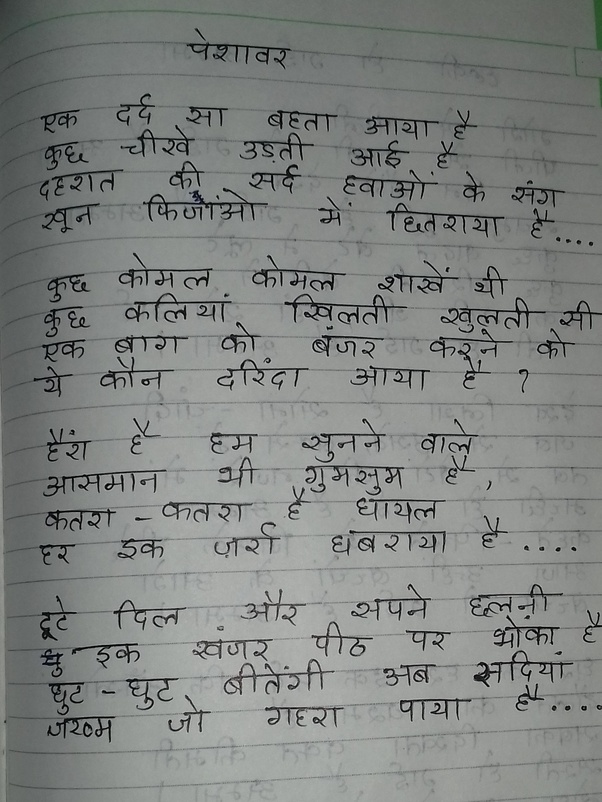 पेशावर
एक दर्द सा बहता आया है
कुछ चीखे उड़ती आई है
दहशत की सर्द हवाओं के संग
खून फिजाओं में छितराया है....
कुछ कोमल कोमल शाखें थी
कुछ कलियां खिलती खुलती सी
एक बाग को बंजर करने को
ये कौन दरिंदा आया है ?
हैरां है हम सुनने वाले
आसमान भी गुमसुम है,
कतरा - कतरा है घायल
हर इक ज़र्रा घबराया है....
टूटे दिल और सपने छलनी
इक खंजर पीठ पर भोंका है
घुट - घुट बीतेंगी अब सदियां
जख्म जो गहरा पाया है....